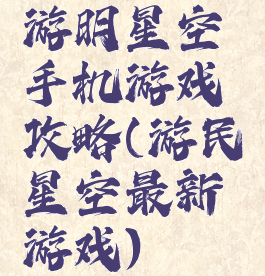 游明星空
手机游戏
攻略(游民
星空最新
游戏)